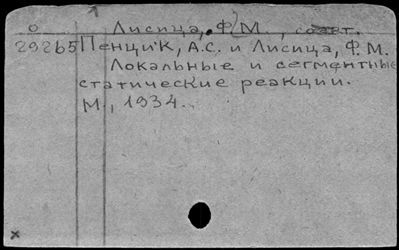 о Лисица, Ф.М., соавт.
29265 Пенцик, А.С. и Лисица, Ф.М.
Локальные и сегментные
статические реакции.
М., 1934.